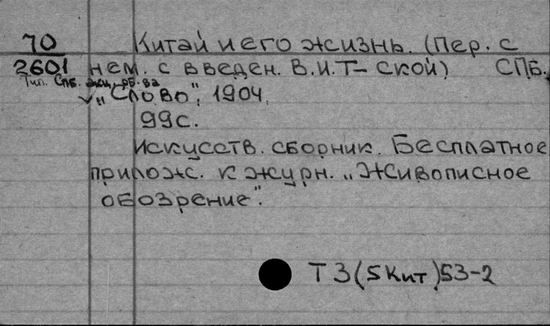 70
2601
Китай и его жизнь. (Пер. с
нем. с введен. В.И.Т-ской) СПБ.
Тип. Спб. акц. об-ва
"Слово", 1904,
99с.
Искусств. сборник. Бесплатное
прилож. к журн. "Живописное
обозрение".
Т3(5Кит)53-2